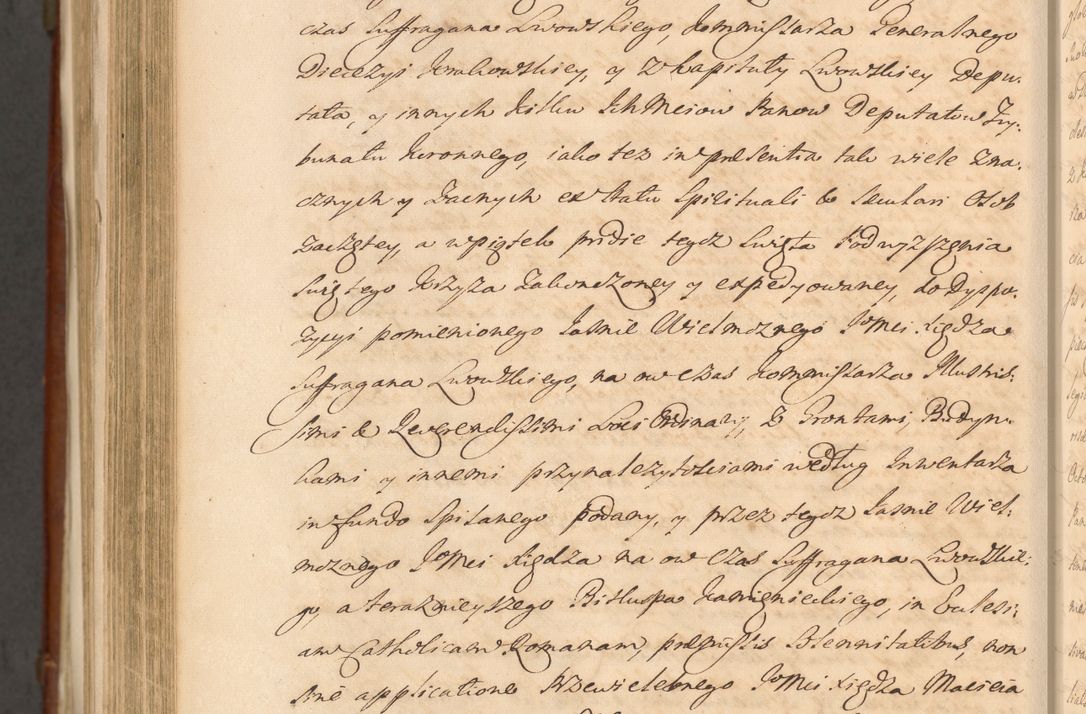 czas Suffragana Lwowskiego, kommissarza Generalnego
Diecezyi Krakowskiey, y z kapituły Lwowskiey Depu-
tata, y innych kilku Ichmciow Panow Deputatow Try-
bunału Koronnego, iako tez in presentia tak wiele zna-
cznych y zacnych ex statu Spirituali & Seculari Osob
zaczętey, a w piątek pridie tegoz Swięta Podwyzszęnia
Swiętego Krzyza zakonczoney y expedyowaney, do Dyspo-
zycyi pomienionego Jasnie Wielmoznego Jmci Xiędza
Suffragana Lwowskiego, na ow czas kommissarza Illustris-
simi & Reverendissimi Loci Ordinarij, z Grontami, Budyn-
kami y innemi przynalezytosciami według Inwentarza
in fundo spisanego podany, y przez tegoz Jasnie Wiel-
moznego Jmci Xiędza na ow czas Suffragana Lwowskie-
go, a teraznieyszego Biskupa Kamienieckiego, in Eccles-
iam Catholicam Romanam, praemissis Solennitatibus, non
sine applicatione Przewielebnego Jmci Xiędza Macieia